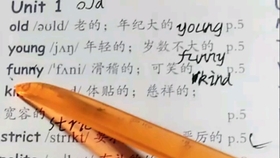 Unit 1 old
old /əʊld/ 老的；年纪大的 young p.5
young /jʌŋ/ 年轻的；岁数不大的 p.5
funny /ˈfʌni/ 滑稽的；可笑的 funny p.5
体贴的；慈祥的； kind
宽容的 p.5
strict /strɪkt/ 要 厉的 p.5